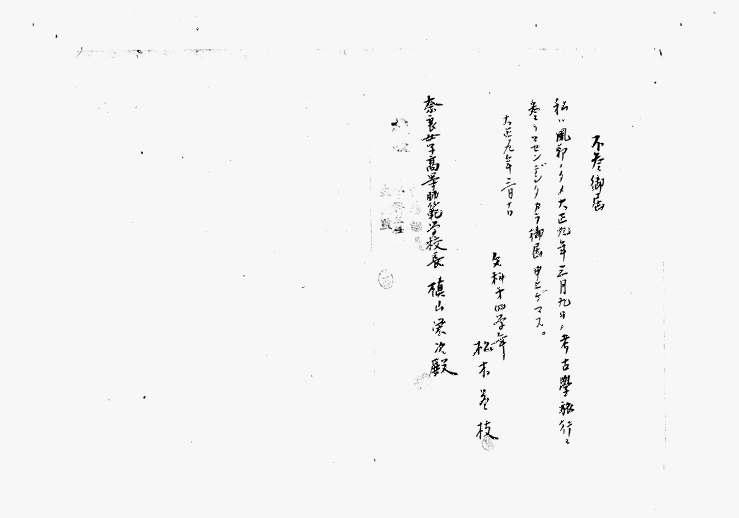 不參御届
私ハ風邪ノタメ大正九年三月九日ノ考古學旅行ニ
參リマセンデシタカラ御届申上ゲマス。
大正九年三月十日
文科第四學年
松本 枝
奈良女子高等師範学校長 槙山栄次殿